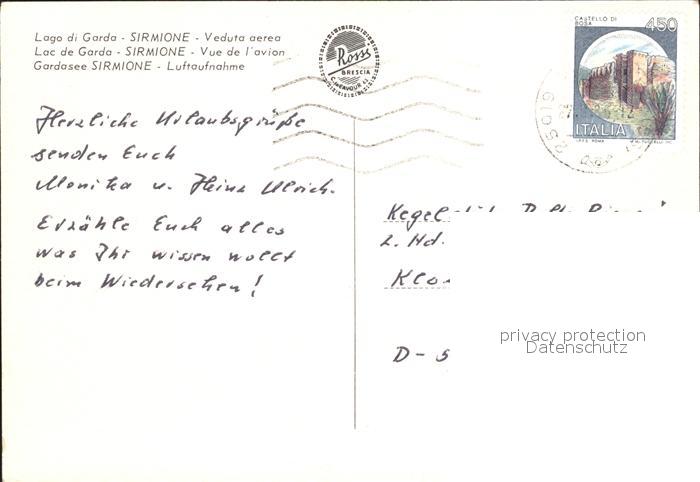 Lago di Garda - SIRMIONE - Veduta aerea
Lac de Garda - SIRMIONE - Vue de l'avion
Gardasee SIRMIONE - Luftaufnahme
Ross
BRESCIA
CASTELLO DI
BOSA
450
ITALIA
I.P.Z.S. ROMA
25090
Herzliche Urlaubsgrüße
senden Euch
Monika u. Heinz Ulrich.
Erzähle Euch alles
was Ihr wissen wollt
beim Wiedersehen!
z. Hd.
D - 5
privacy protection
Datenschutz